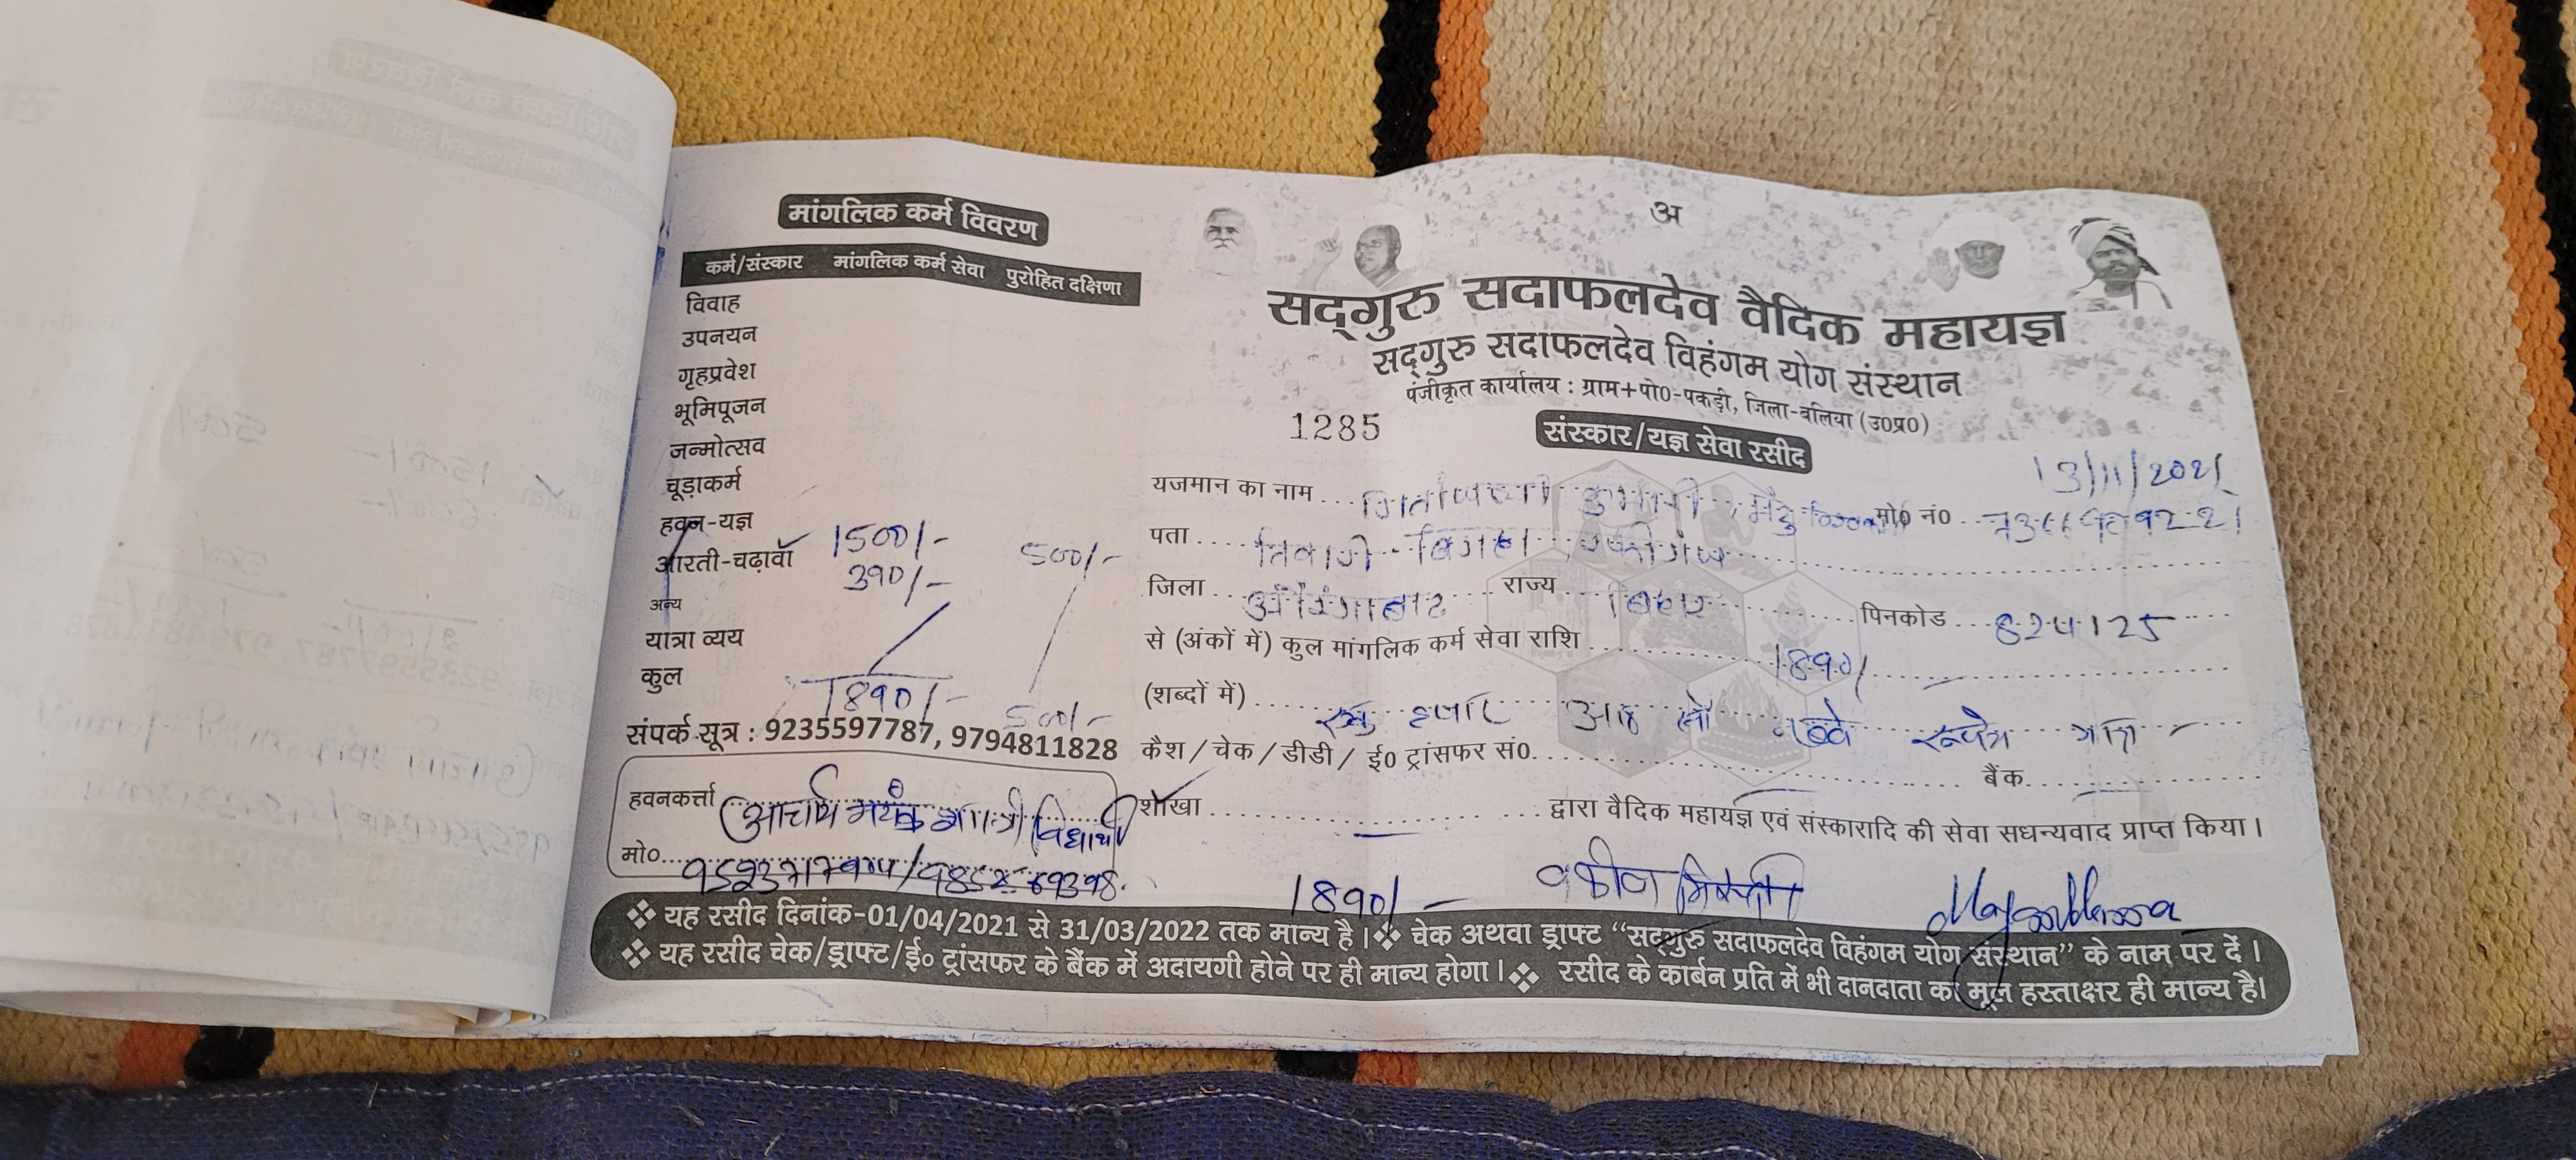 मांगलिक कर्म विवरण
कर्म/संस्कार मांगलिक कर्म सेवा पुरोहित दक्षिणा
विवाह
उपनयन
गृहप्रवेश
भूमिपूजन
जन्मोत्सव
चूड़ाकर्म
हवन-यज्ञ 1500/- 500/-
आरती-चढ़ावा 390/-
अन्य
यात्रा व्यय
कुल 1890/- 500/-
संपर्क सूत्र : 9235597787, 9794811828
हवनकर्त्ता आचार्य मयंक शास्त्री विद्यार्थी
मो०
अ
सद्गुरु सदाफलदेव वैदिक महायज्ञ
सद्गुरु सदाफलदेव विहंगम योग संस्थान
पंजीकृत कार्यालय : ग्राम+पो0-पकड़ी, जिला-बलिया (उ0प्र0)
1285 संस्कार/यज्ञ सेवा रसीद
13/11/2021
यजमान का नाम कुमारी मो0 नं0
पता तिवारी बिगहा
जिला औरंगाबाद राज्य बिहार पिनकोड 824125
से (अंकों में) कुल मांगलिक कर्म सेवा राशि 1890/
(शब्दों में) एक हजार आठ सौ नब्बे रूपये मात्र
कैश / चेक / डीडी / ई0 ट्रांसफर सं0. बैंक
शाखा द्वारा वैदिक महायज्ञ एवं संस्कारादि की सेवा सधन्यवाद प्राप्त किया।
1890/-
❖ यह रसीद दिनांक-01/04/2021 से 31/03/2022 तक मान्य है। ❖ चेक अथवा ड्राफ्ट “सद्गुरु सदाफलदेव विहंगम योग संस्थान” के नाम पर दें।
❖ यह रसीद चेक/ड्राफ्ट/ई० ट्रांसफर के बैंक में अदायगी होने पर ही मान्य होगा। ❖ रसीद के कार्बन प्रति में भी दानदाता का मूल हस्ताक्षर ही मान्य है।